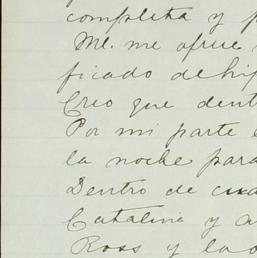 completa y
Me. me ofrece
ficado de hip
Creo que dent
Por mi parte
la noche para
Dentro de cua
Catalina y a
Ross y la